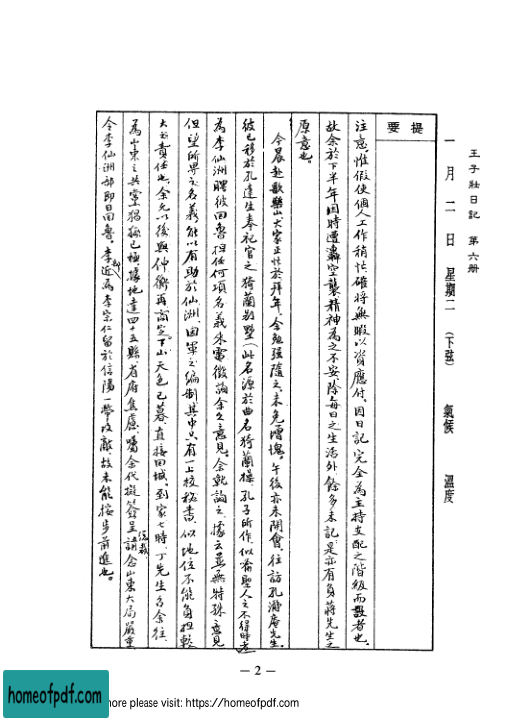 王子壯日記 第六冊
一月二日 星期二 （下弦） 氣候 溫度
提要
注意。惟假使個人工作稍忙確將無暇以資應付。因日記完全為主持支配之階級而設者也。
故余於下半年因時遭轟空襲精神為之不安除每日之生活外，餘多未記，是亦有負蔣先生之
原意也。
今晨赴歌樂山大家正忙於拜年，余勉強隨之，未免增愧。午後亦未開會，往訪孔先生。
彼已移於孔達生奉祀官之猗蘭別墅（此名源於曲名猗蘭操，孔子所作，似喻聖人之不得時者
為李仙洲聘彼回魯担任何項名義來電徵詢余之意見。余就論之，據云並無特殊意見
但望所畀之名義能以有助於仙洲，因軍之編制其中只有一上校秘書，似地位不能負担較
大之責任也，余允以後與仲衡再商定。下山天色已暮，直接回城，到家七時，丁先生召余往，
為山東之共黨猖獗已極，據地達四十五縣，省府焦慮，囑余代擬簽呈總裁請念山東大局嚴重
令李仙洲部即日回魯。李近即為李宗仁留於信陽一帶攻敵，故未能按步前進也。
— 2 —
homeofpdf.com
more please visit: https://homeofpdf.com